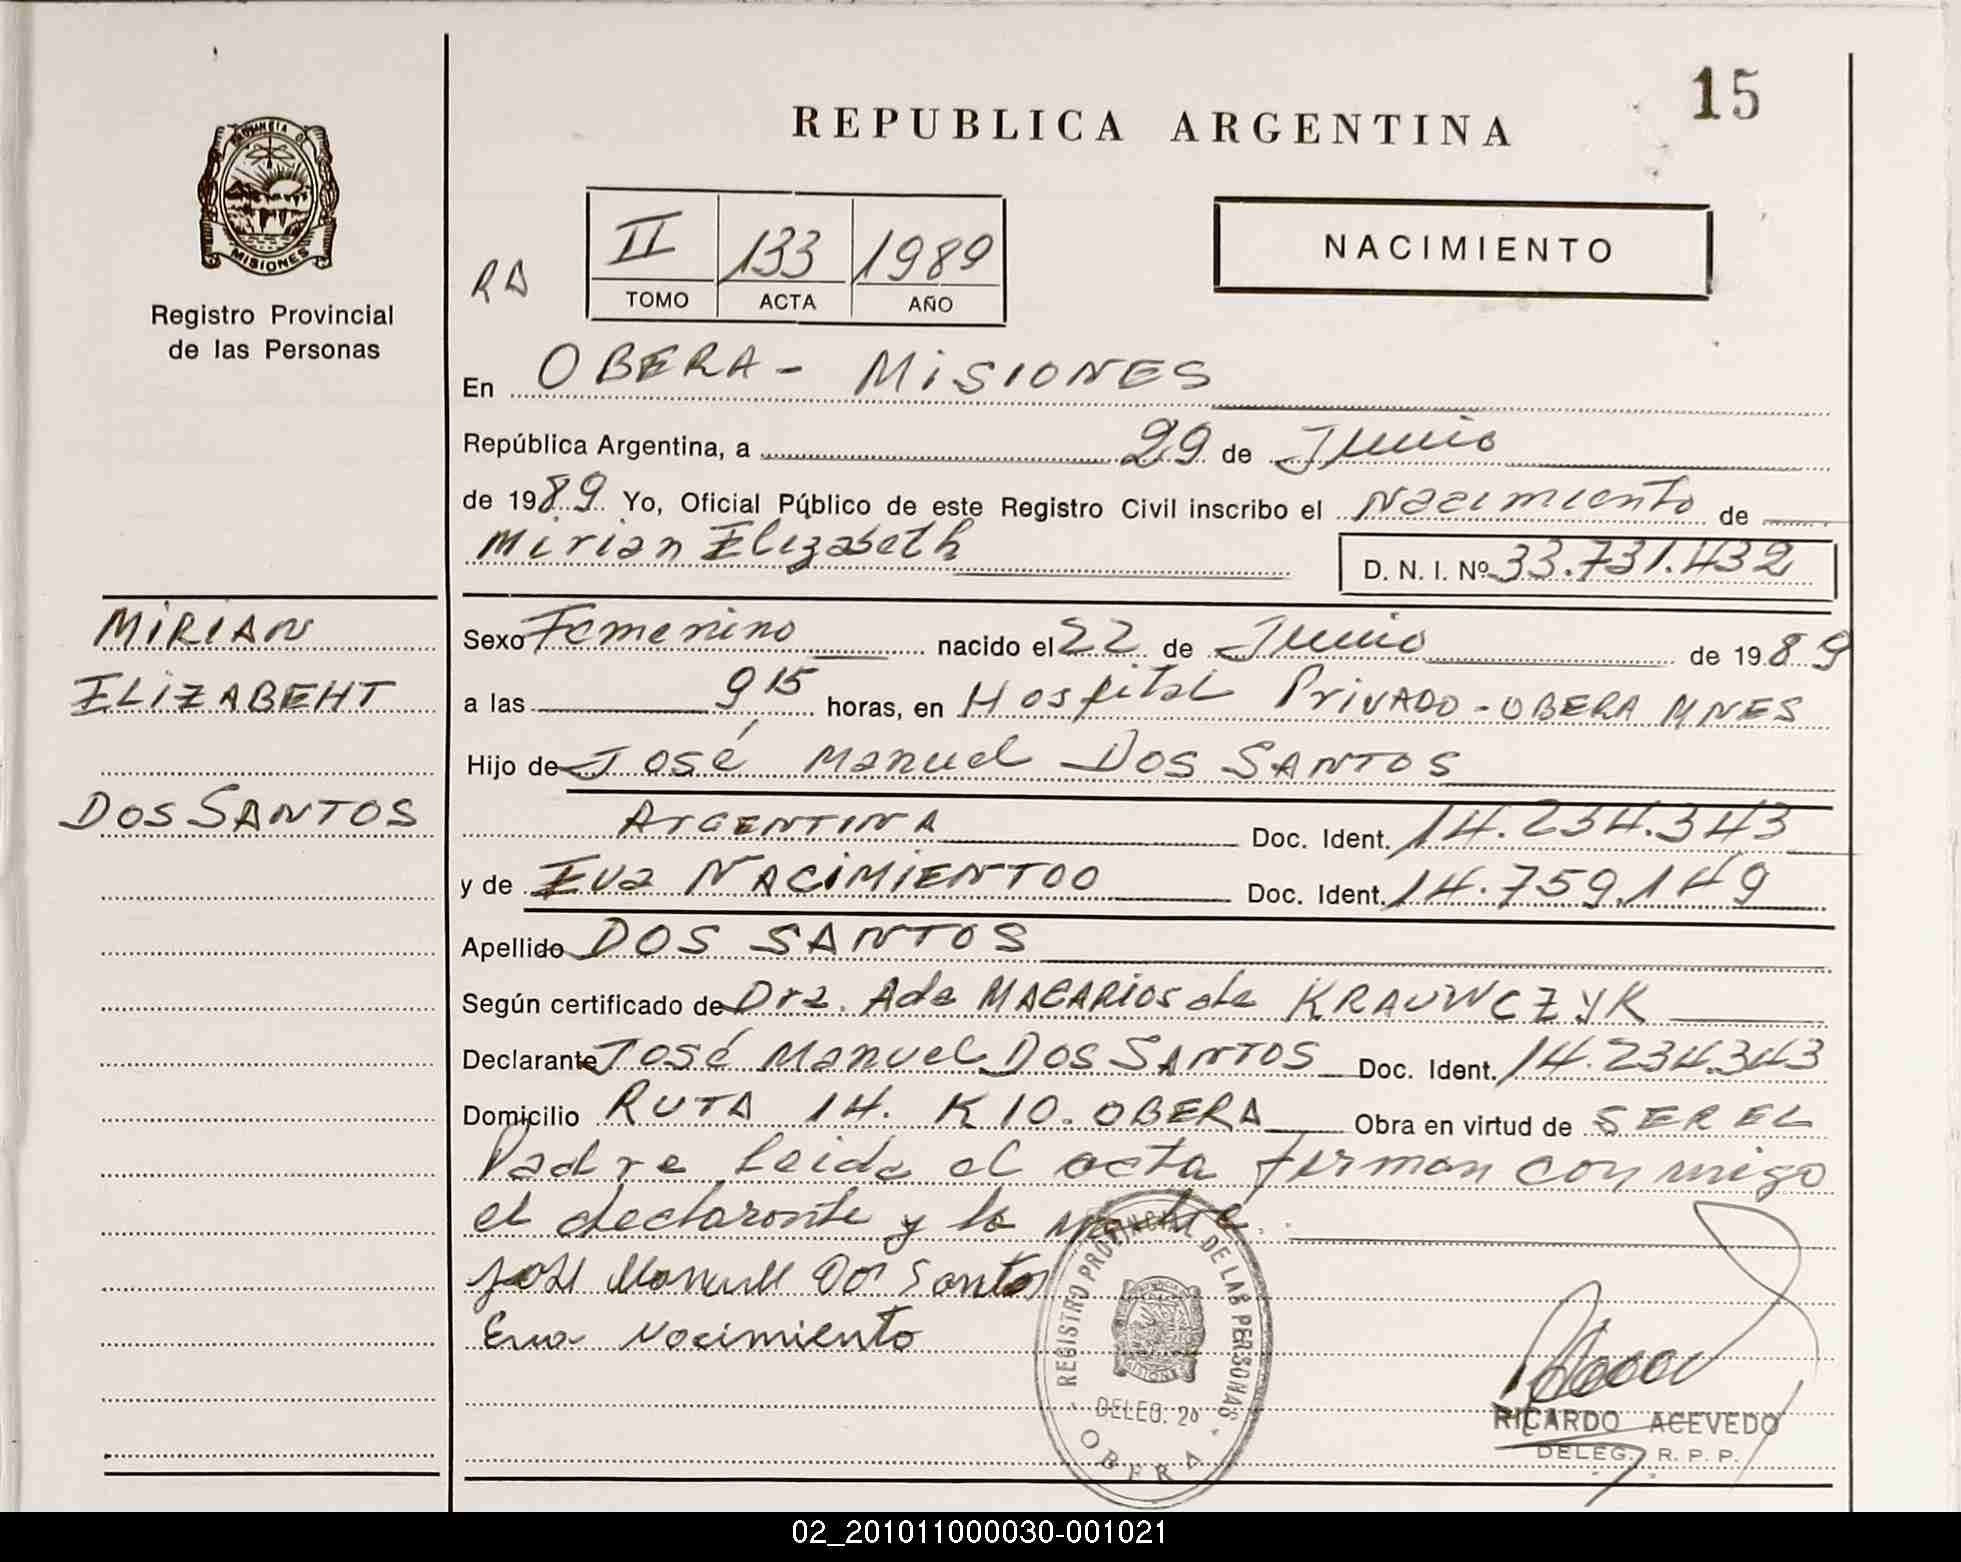 15
REPUBLICA ARGENTINA
PROVINCIA DE
MISIONES
Registro Provincial
de las Personas
NACIMIENTO
RA
II 133 1989
TOMO ACTA AÑO
En OBERA - MISIONES
República Argentina, a 29 de Junio
de 1989 Yo, Oficial Público de este Registro Civil inscribo el Nacimiento de
Mirian Elizabeth
D. N. I. Nº 33.731.432
MIRIAN
ELIZABEHT
DOS SANTOS
Sexo Femenino nacido el 22 de Junio de 1989
a las 9,15 horas, en Hospital PRIVADO - OBERA MNES
Hijo de José Manuel DOS SANTOS
ARGENTINA Doc. Ident. 14.234.343
y de Eva NACIMIENTOO Doc. Ident. 14.759.149
Apellido DOS SANTOS
Según certificado de Dra. Ada MACARIOS de KRAUWCZYK
Declarante José Manuel DOS SANTOS Doc. Ident. 14.234.343
Domicilio RUTA 14. K 10. OBERA Obra en virtud de SER EL
Padre leida el acta firman conmigo
el declarante y la madre.
José Manuel Dos Santos
Eva Nacimiento
REGISTRO PROVINCIAL DE LAS PERSONAS
DELEG. 2ª
OBERA
RICARDO ACEVEDO
DELEG. R. P. P.
02_201011000030-001021